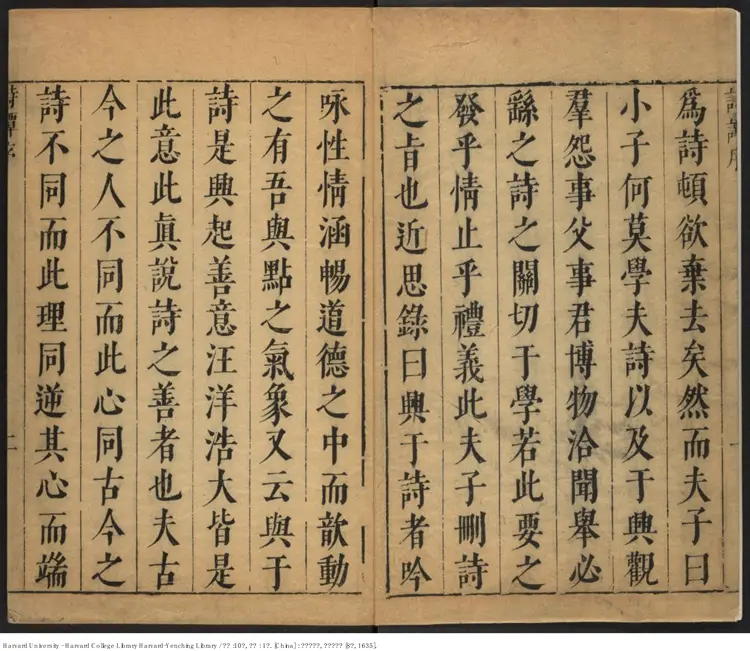 爲詩頓欲棄去矣然而夫子曰
小子何莫學夫詩以及于興觀
羣怨事父事君博物洽聞舉必
繇之詩之關切于學若此要之
發乎情止乎禮義此夫子刪詩
之旨也近思錄曰興于詩者吟
咏性情涵暢道德之中而歆動
之有吾與點之氣象又云興于
詩是興起善意汪洋浩大皆是
此意此眞說詩之善者也夫古
今之人不同而此心同古今之
詩不同而此理同逆其心而端
詩譚序
二
Harvard University - Harvard College Library Harvard-Yenching Library / ?? :10?, ?? : 1?. [China] : ?????, ????? [8?, 1635].